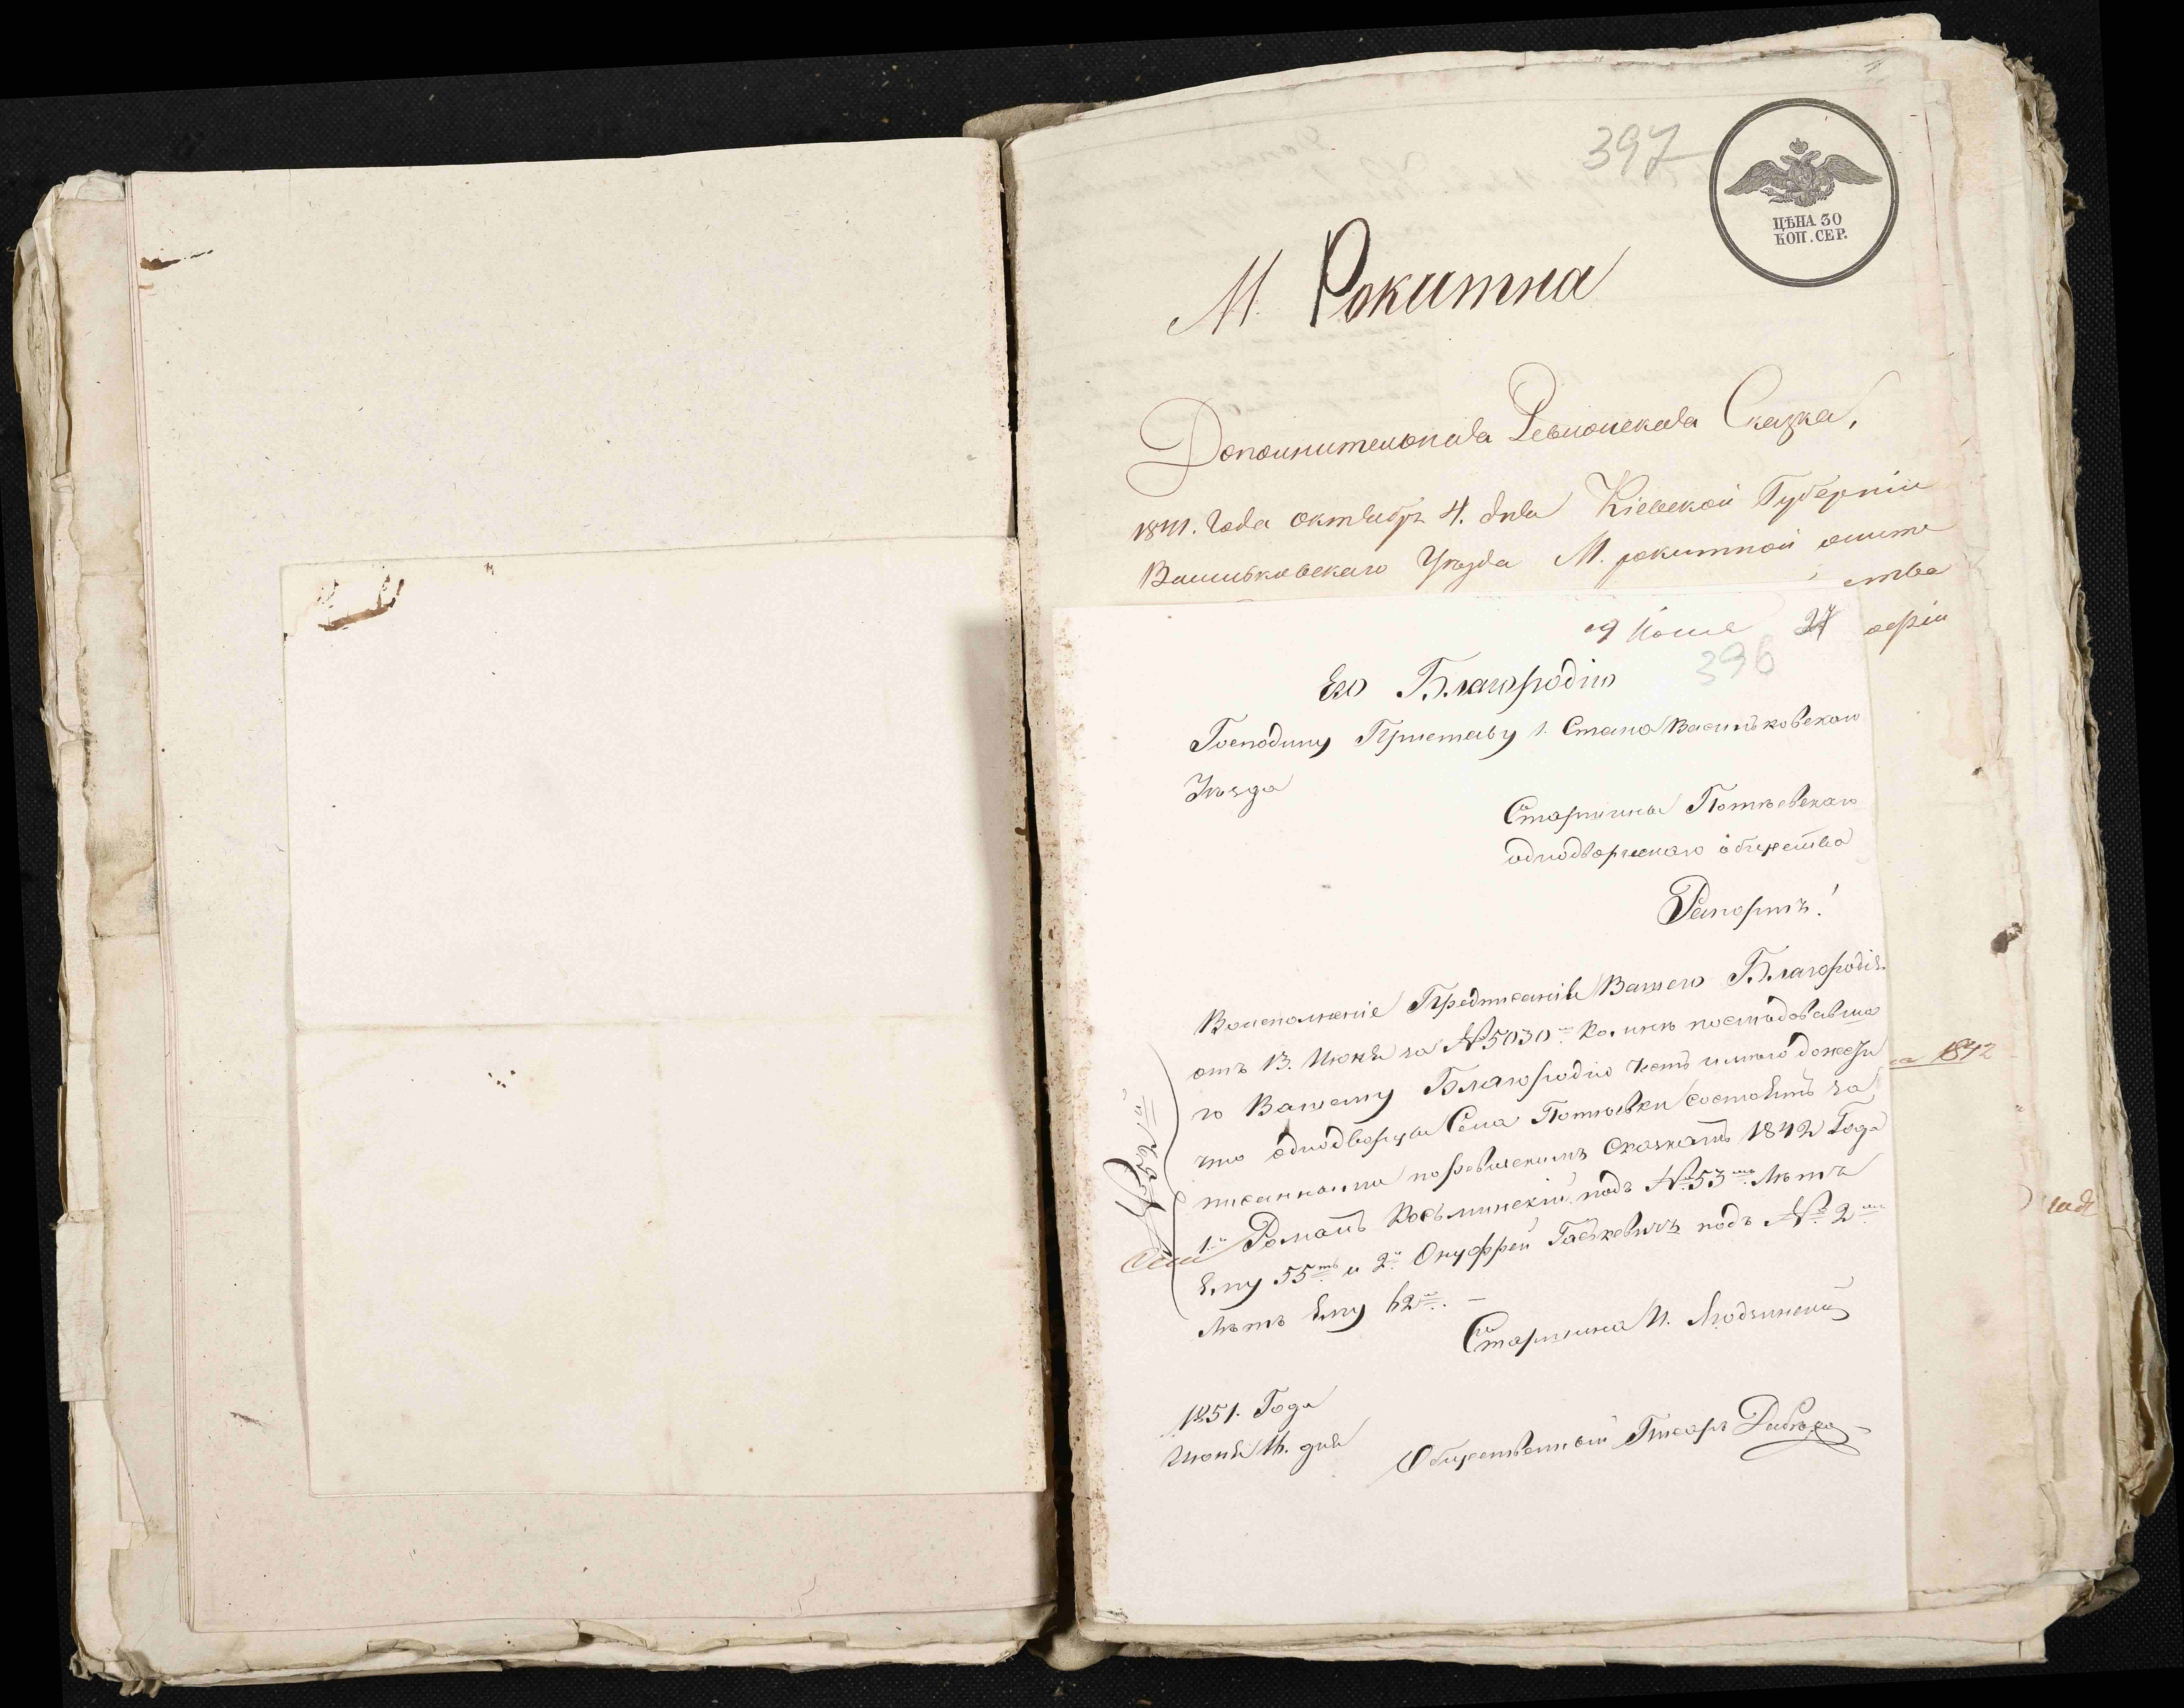 397
ЦѢНА 30
КОП. СЕР.
М. Рокитна
Дополнительная Ревизская Сказка,
1841. Года октября 4. дня Кіевской Губерніи
Васильковскаго Уѣзда М. рокитной
ства
19 Іюня 27
396
Его Благородію
Господину Приставу 1. Стана Васильковскаго
Уѣзда
Старшины Потіевскаго
однодворческаго общества
Рапортъ!
Воисполненіе Предписанія Вашего Благородія
отъ 13. Июня за № 5030 последовавша
го Вашему Благородію честь имѣю донести
что однодворцы Села Потіевки состоятъ за
писанными поревизскимъ сказкамъ 1842 Года
1й Романъ Косьминскій подъ № 53мъ Лѣтъ
Ему 55ть и 2й Онуфрей Гаськевичъ подъ № 2мъ
Лѣтъ Ему 62.
Старшина И. Людзинскій
1851. Года
Июня 16. дня
Общественный Писарь
1842